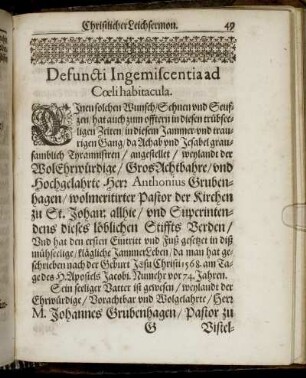 Christlicher Leichsermon. 49
Defuncti Ingemiscentia ad
Cœli habitacula.
EInen solchen Wunsch/ Sehnen vnd Seuff-
zen/ hat auch zum offtern in diesen trübsee-
ligen Zeiten/ in diesem Jammer vnd trau-
rigen Gang/ da Achab vnd Jesabel grau-
samblich Tyrannisirten/ angestellet/ weylandt der
WolEhrwürdige/ GrosAchtbahre/ vnd
Hochgelahrte Herr Anthonius Gruben-
hagen/ wolmeritirter Pastor der Kirchen
zu St. Johan: allhie/ vnd Superinten-
dens dieses löblichen Stiffts Verden/
Vnd hat den ersten Eintritt vnd Fuß gesetzet in diß
mühseelige/ klägliche JammerLeben/ da man hat ge-
schrieben nach der Geburt JEsu Christi 1568. am Ta-
ge des H. Apostels Jacobi. Numehr vor 74. Jahren.
Sein seeliger Vatter ist gewesen/ weylandt der
Ehrwürdige/ Vorachtbar vnd Wolgelahrte/ Herr
M. Johannes Grubenhagen/ Pastor zu
G Vistel-